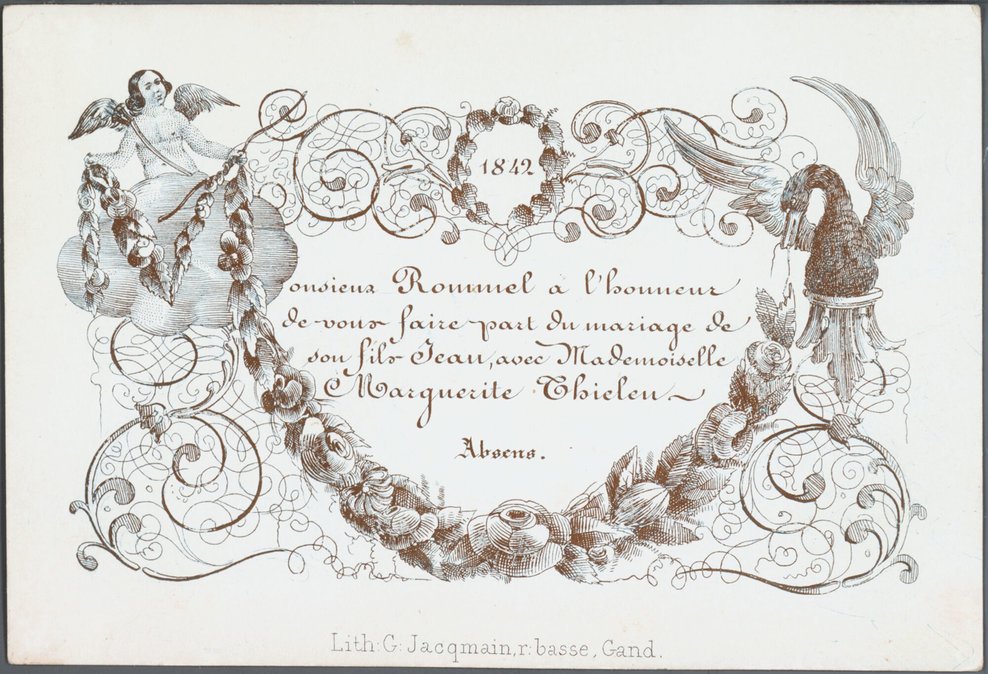 1842
Monsieur Rommel a l'honneur
de vous faire part du mariage de
son fils Jean, avec Mademoiselle
Marguerite Thielen
Absens.
Lith: G: Jacqmain, r: basse, Gand.